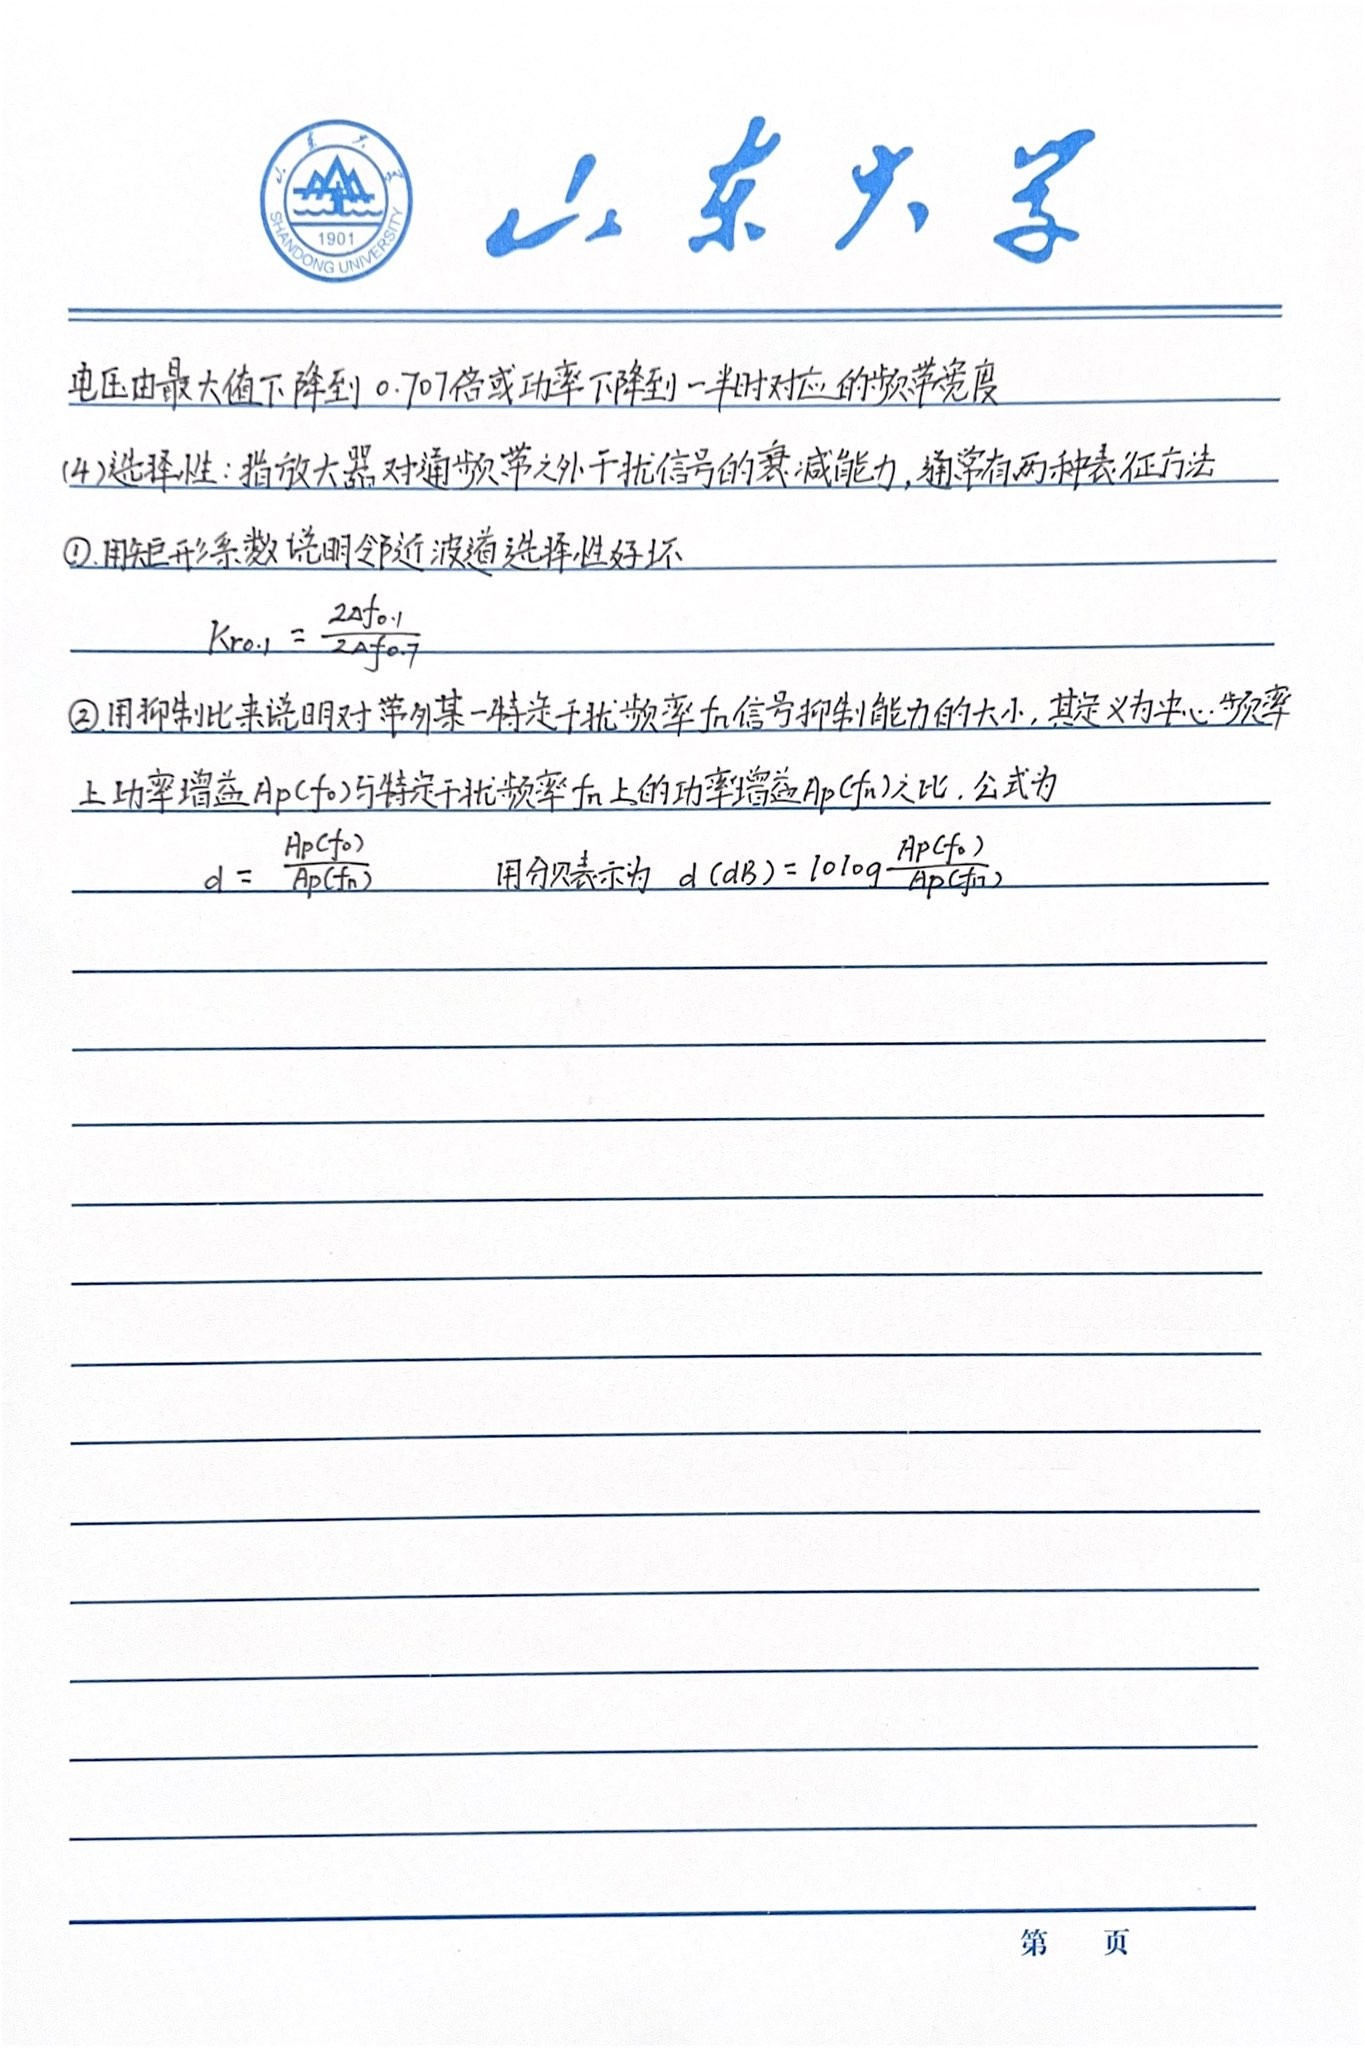 山东大学
山东大学
1901
SHANDONG UNIVERSITY
电压由最大值下降到0.707倍或功率下降到一半时对应的频带宽度
(4)选择性:指放大器对通频带之外干扰信号的衰减能力,通常有两种表征方法
①.用矩形系数说明邻近波道选择性好坏
Kr0.1 = 2Δf0.1 / 2Δf0.7
②.用抑制比来说明对带外某一特定干扰频率fn信号抑制能力的大小,其定义为中心频率
上功率增益Ap(f0)与特定干扰频率fn上的功率增益Ap(fn)之比.公式为
d = Ap(f0) / Ap(fn) 用分贝表示为 d(dB) = 10log Ap(f0) / Ap(fn)
第 页